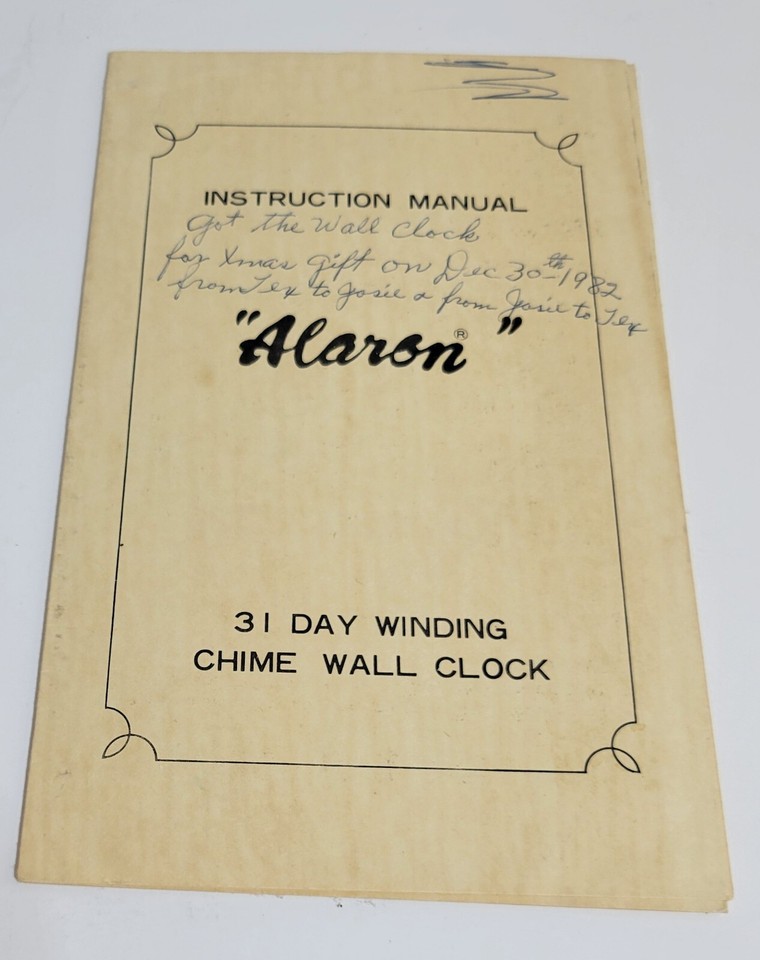 INSTRUCTION MANUAL
Got the Wall Clock
for Xmas Gift on Dec 30th-1982
from Tex to Josie & from Josie to Tex
"Alaron®"
31 DAY WINDING
CHIME WALL CLOCK